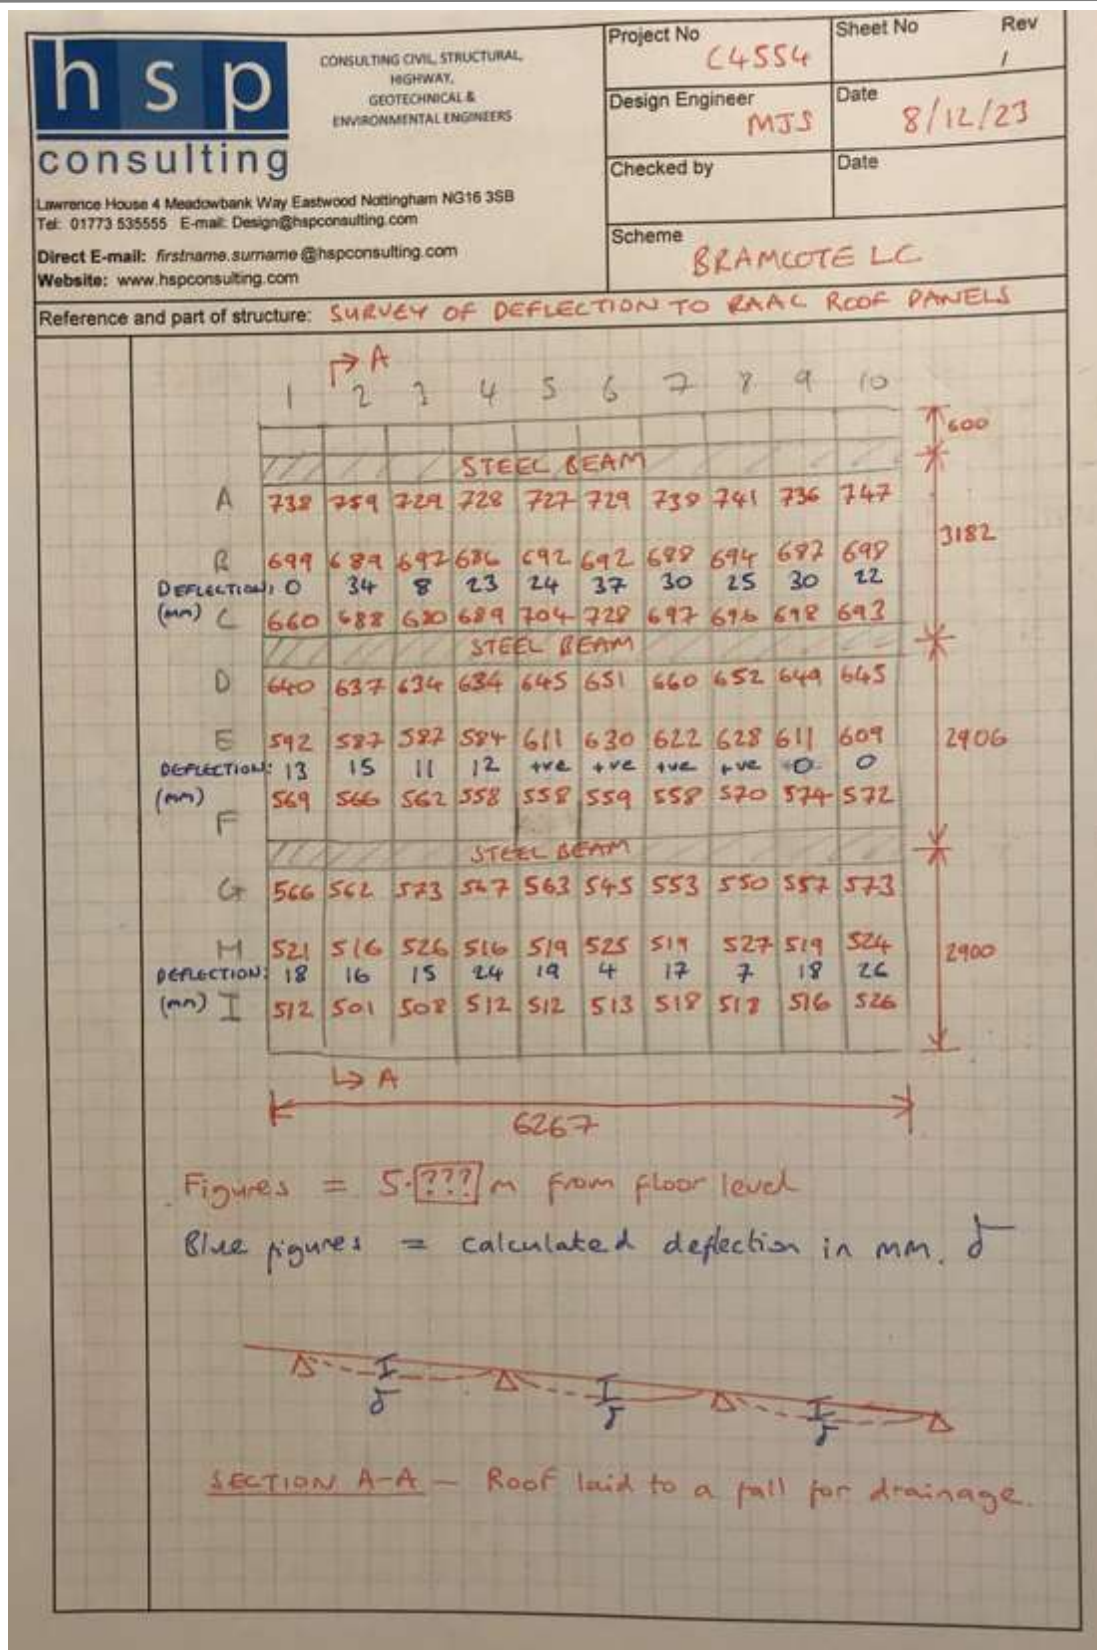 hsp
consulting
CONSULTING CIVIL, STRUCTURAL,
HIGHWAY,
GEOTECHNICAL &
ENVIRONMENTAL ENGINEERS
Lawrence House 4 Meadowbank Way Eastwood Nottingham NG16 3SB
Tel: 01773 535555 E-mail: Design@hspconsulting.com
Direct E-mail: firstname.surname@hspconsulting.com
Website: www.hspconsulting.com
Project No C4554
Sheet No
Rev 1
Design Engineer MJS
Date 8/12/23
Checked by
Date
Scheme BRAMCOTE LC
Reference and part of structure: SURVEY OF DEFLECTION TO RAAC ROOF PANELS
A
1 2 3 4 5 6 7 8 9 10
600
STEEL BEAM
A 738 759 729 728 727 729 738 741 736 747
3182
B 699 689 692 686 692 692 688 694 687 698
DEFLECTION: 0 34 8 23 24 37 30 25 30 22
(mm) C 660 688 680 689 704 728 697 696 698 693
STEEL BEAM
D 640 637 634 634 645 651 660 652 649 645
E 592 587 587 584 611 630 622 628 611 609
2906
DEFLECTION: 13 15 11 12 +ve +ve +ve +ve 0 0
(mm) 569 566 562 558 558 559 558 570 574 572
F
STEEL BEAM
G 566 562 573 567 563 545 553 550 557 573
H 521 516 526 516 519 525 519 527 519 524
2900
DEFLECTION: 18 16 15 24 19 4 17 7 18 26
(mm) I 512 501 508 512 512 513 518 518 516 526
A
6267
Figures = 5.??? m from floor level
Blue figures = calculated deflection in mm. δ
δ δ δ
SECTION A-A - Roof laid to a fall for drainage.